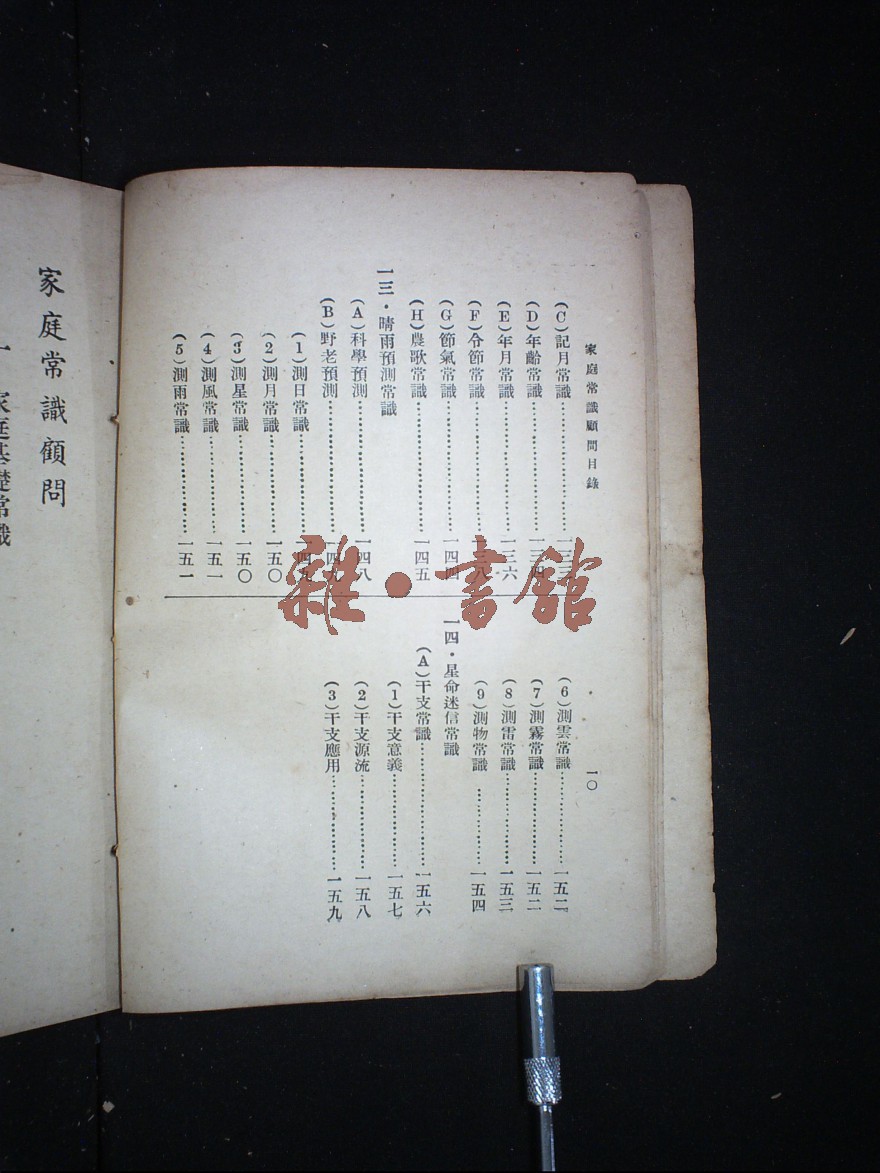 家庭常識顧問目錄
一〇
(C)記月常識…………一三三
(D)年齡常識…………一三四
(E)年月常識…………一三六
(F)令節常識…………一三八
(G)節氣常識…………一四四
(H)農歌常識…………一四五
一三・晴雨預測常識
(A)科學預測…………一四八
(B)野老預測…………一四九
(1)測日常識…………一四九
(2)測月常識…………一五〇
(3)測星常識…………一五〇
(4)測風常識…………一五一
(5)測雨常識…………一五一
(6)測雲常識…………一五二
(7)測霧常識…………一五二
(8)測雷常識…………一五三
(9)測物常識…………一五四
一四・星命迷信常識
(A)干支常識…………一五六
(1)干支意義…………一五七
(2)干支源流…………一五八
(3)干支應用…………一五九
家庭常識顧問
一 家庭基礎常識
雜・書館